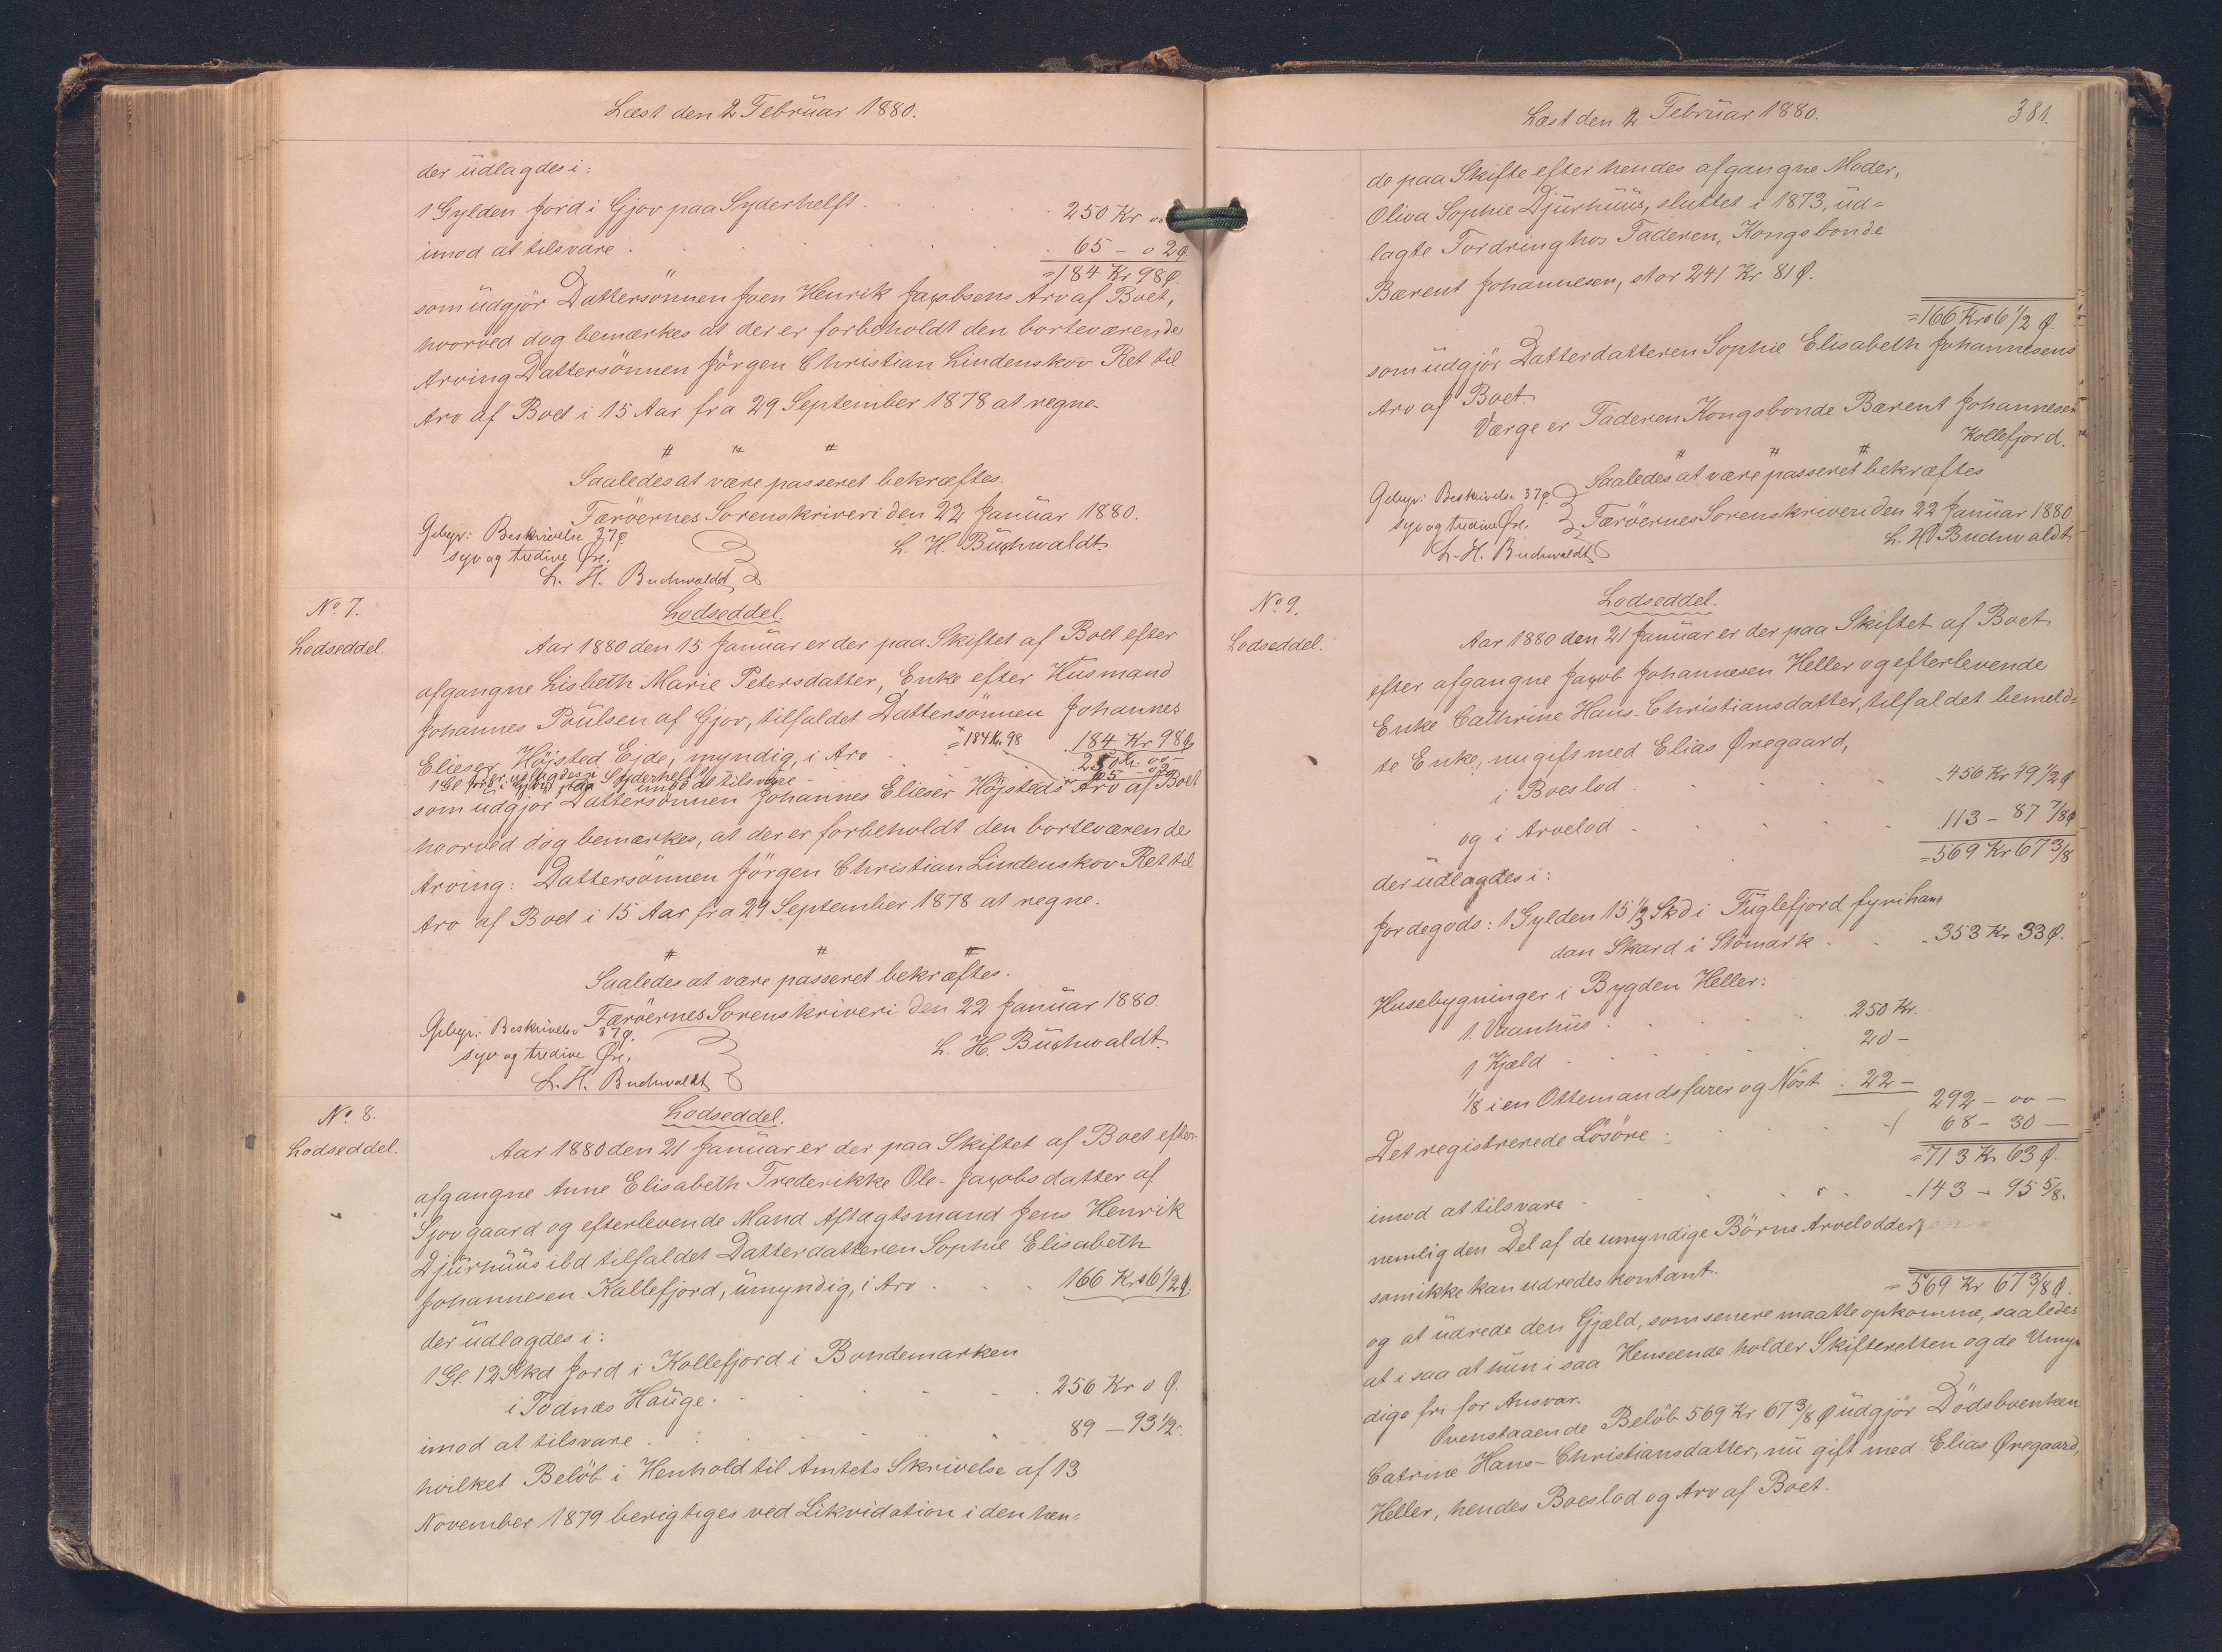 Læst den 2 Februar 1880.
der udlagdes i:
1 Gylden Jord i Gjov paa Syderhelft . . . 250 Kr oo
imod at tilsvare . . . 65 – 02 Ø
= 184 Kr 98 Ø.
som udgjör Dattersönnen Joen Henrik Jacobsens Arv af Boet,
hvorved dog bemærkes at der er forbeholdt den borteværende
Arving Dattersönnen Jörgen Christian Lindenskov Ret til
Arv af Boet i 15 Aar fra 29 September 1878 at regne.
Saaledes at være passeret bekræftes.
Færöernes Sorenskriveri den 22 Januar 1880.
L. H. Buchwaldt.
Gebyr: Beskrivelse 37 Ø.
syv og tredive Øre.
L. H. Buchwaldt
No 7.
Lodseddel.
Lodseddel.
Aar 1880 den 15 Januar er der paa Skiftet af Boet efter
afgangne Lisbeth Marie Petersdatter, Enke efter Husmand
Johannes Poulsen af Gjov, tilfaldet Dattersönnen Johannes
Elieser Höjsted Ejde, myndig, i Arv . . = 184 Kr. 98 184 Kr 98 Ø
der udlagdes i 250 Kr. oo –
1 Gl Jord i Gjov paa Syderhelft imod at tilsvare – 65 – 02
som udgjör Dattersönnen Johannes Elieser Höjsteds Arv af Boet
hvorved dog bemærkes, at der er forbeholdt den borteværende
Arving: Dattersönnen Jörgen Christian Lindenskov Ret til
Arv af Boet i 15 Aar fra 29 September 1878 at regne.
Saaledes at være passeret bekræftes.
Færöernes Sorenskriveri den 22 Januar 1880.
L. H. Buchwaldt.
Gebyr: Beskrivelse 37 Ø.
syv og tredive Øre.
L. H. Buchwaldt
No 8.
Lodseddel.
Lodseddel.
Aar 1880 den 21 Januar er der paa Skiftet af Boet efter
afgangne Anne Elisabeth Frederikke Ole-Jacobsdatter af
Gjovgaard og efterlevende Mand Aftagtsmand Jens Henrik
Djurhuus ibd tilfaldet Datterdatteren Sophie Elisabeth
Johannesen Kallefjord, umyndig, i Arv . . . 166 Kr 06 1/2 Ø.
der udlagdes i:
1 Gl. 12 Skd Jord i Kollefjord i Bondemarken
i Todnæs Hauge . . . 256 Kr 0 Ø.
imod at tilsvare . . . 89 – 93 1/2 –
hvilket Belöb i Henhold til Amtets Skrivelse af 13
November 1879 berigtiges ved Likvidation i den hen=
Læst den 2 Februar 1880.
381.
de paa Skifte efter hendes afgangne Moder,
Oliva Sophie Djurhuus, sluttet i 1873, ud=
lagte Fordring hos Faderen, Kongsbonde
Bærent Johannesen, stor 241 Kr 81 Ø.
= 166 Kr 06 1/2 Ø.
som udgjör Datterdatteren Sophie Elisabeth Johannesens
Arv af Boet.
Værge er Faderen Kongsbonde Bærent Johannesen
Kollefjord.
Saaledes at være passeret bekræftes
Færöernes Sorenskriveri den 22 Januar 1880
L. H. Buchwaldt
Gebyr: Beskrivelse 37 Ø.
syv og tredive Øre.
L. H. Buchwaldt
No 9.
Lodseddel.
Lodseddel.
Aar 1880 den 21 Januar er der paa Skiftet af Boet
efter afgangne Jacob Johannesen Heller og efterlevende
Enke Cathrine Hans-Christiansdatter, tilfaldet bemeld=
te Enke, nu gift med Elias Øregaard,
i Boeslod . . . 456 Kr 49 1/2 Ø
og i Arvelod . . . 113 – 87 7/8 Ø
= 569 Kr 67 3/8
der udlagdes i:
Jordegods: 1 Gylden 15 1/3 Skd i Fuglefjord fyrihan
dan Skard i Stömark . . 353 Kr 33 Ø.
Husebygninger i Bygden Heller:
1. Vaanhus . . . 250 Kr.
1 Kjæld . . . 20 –
1/8 i en Ottemandsfarer og Nöst . 22 –
292 – oo –
Det registrerede Lösöre . . . 68 – 30 –
= 713 Kr 63 Ø.
imod at tilsvare . . . 143 – 95 5/8.
nemlig den Del af de umyndige Börns Arvelodder,
som ikke kan udredes kontant.
= 569 Kr 67 3/8 Ø.
og at udrede den Gjæld, som senere maatte opkomme, saaledes
at i saa at hun i saa Henseende holder Skifteretten og de Umyn
dige fri for Ansvar.
Ovenstaaende Belöb 569 Kr 67 3/8 Ø udgjör Dödsboenken
Catrine Hans-Christiansdatter, nu gift med Elias Øregaard,
Heller, hendes Boeslod og Arv af Boet.